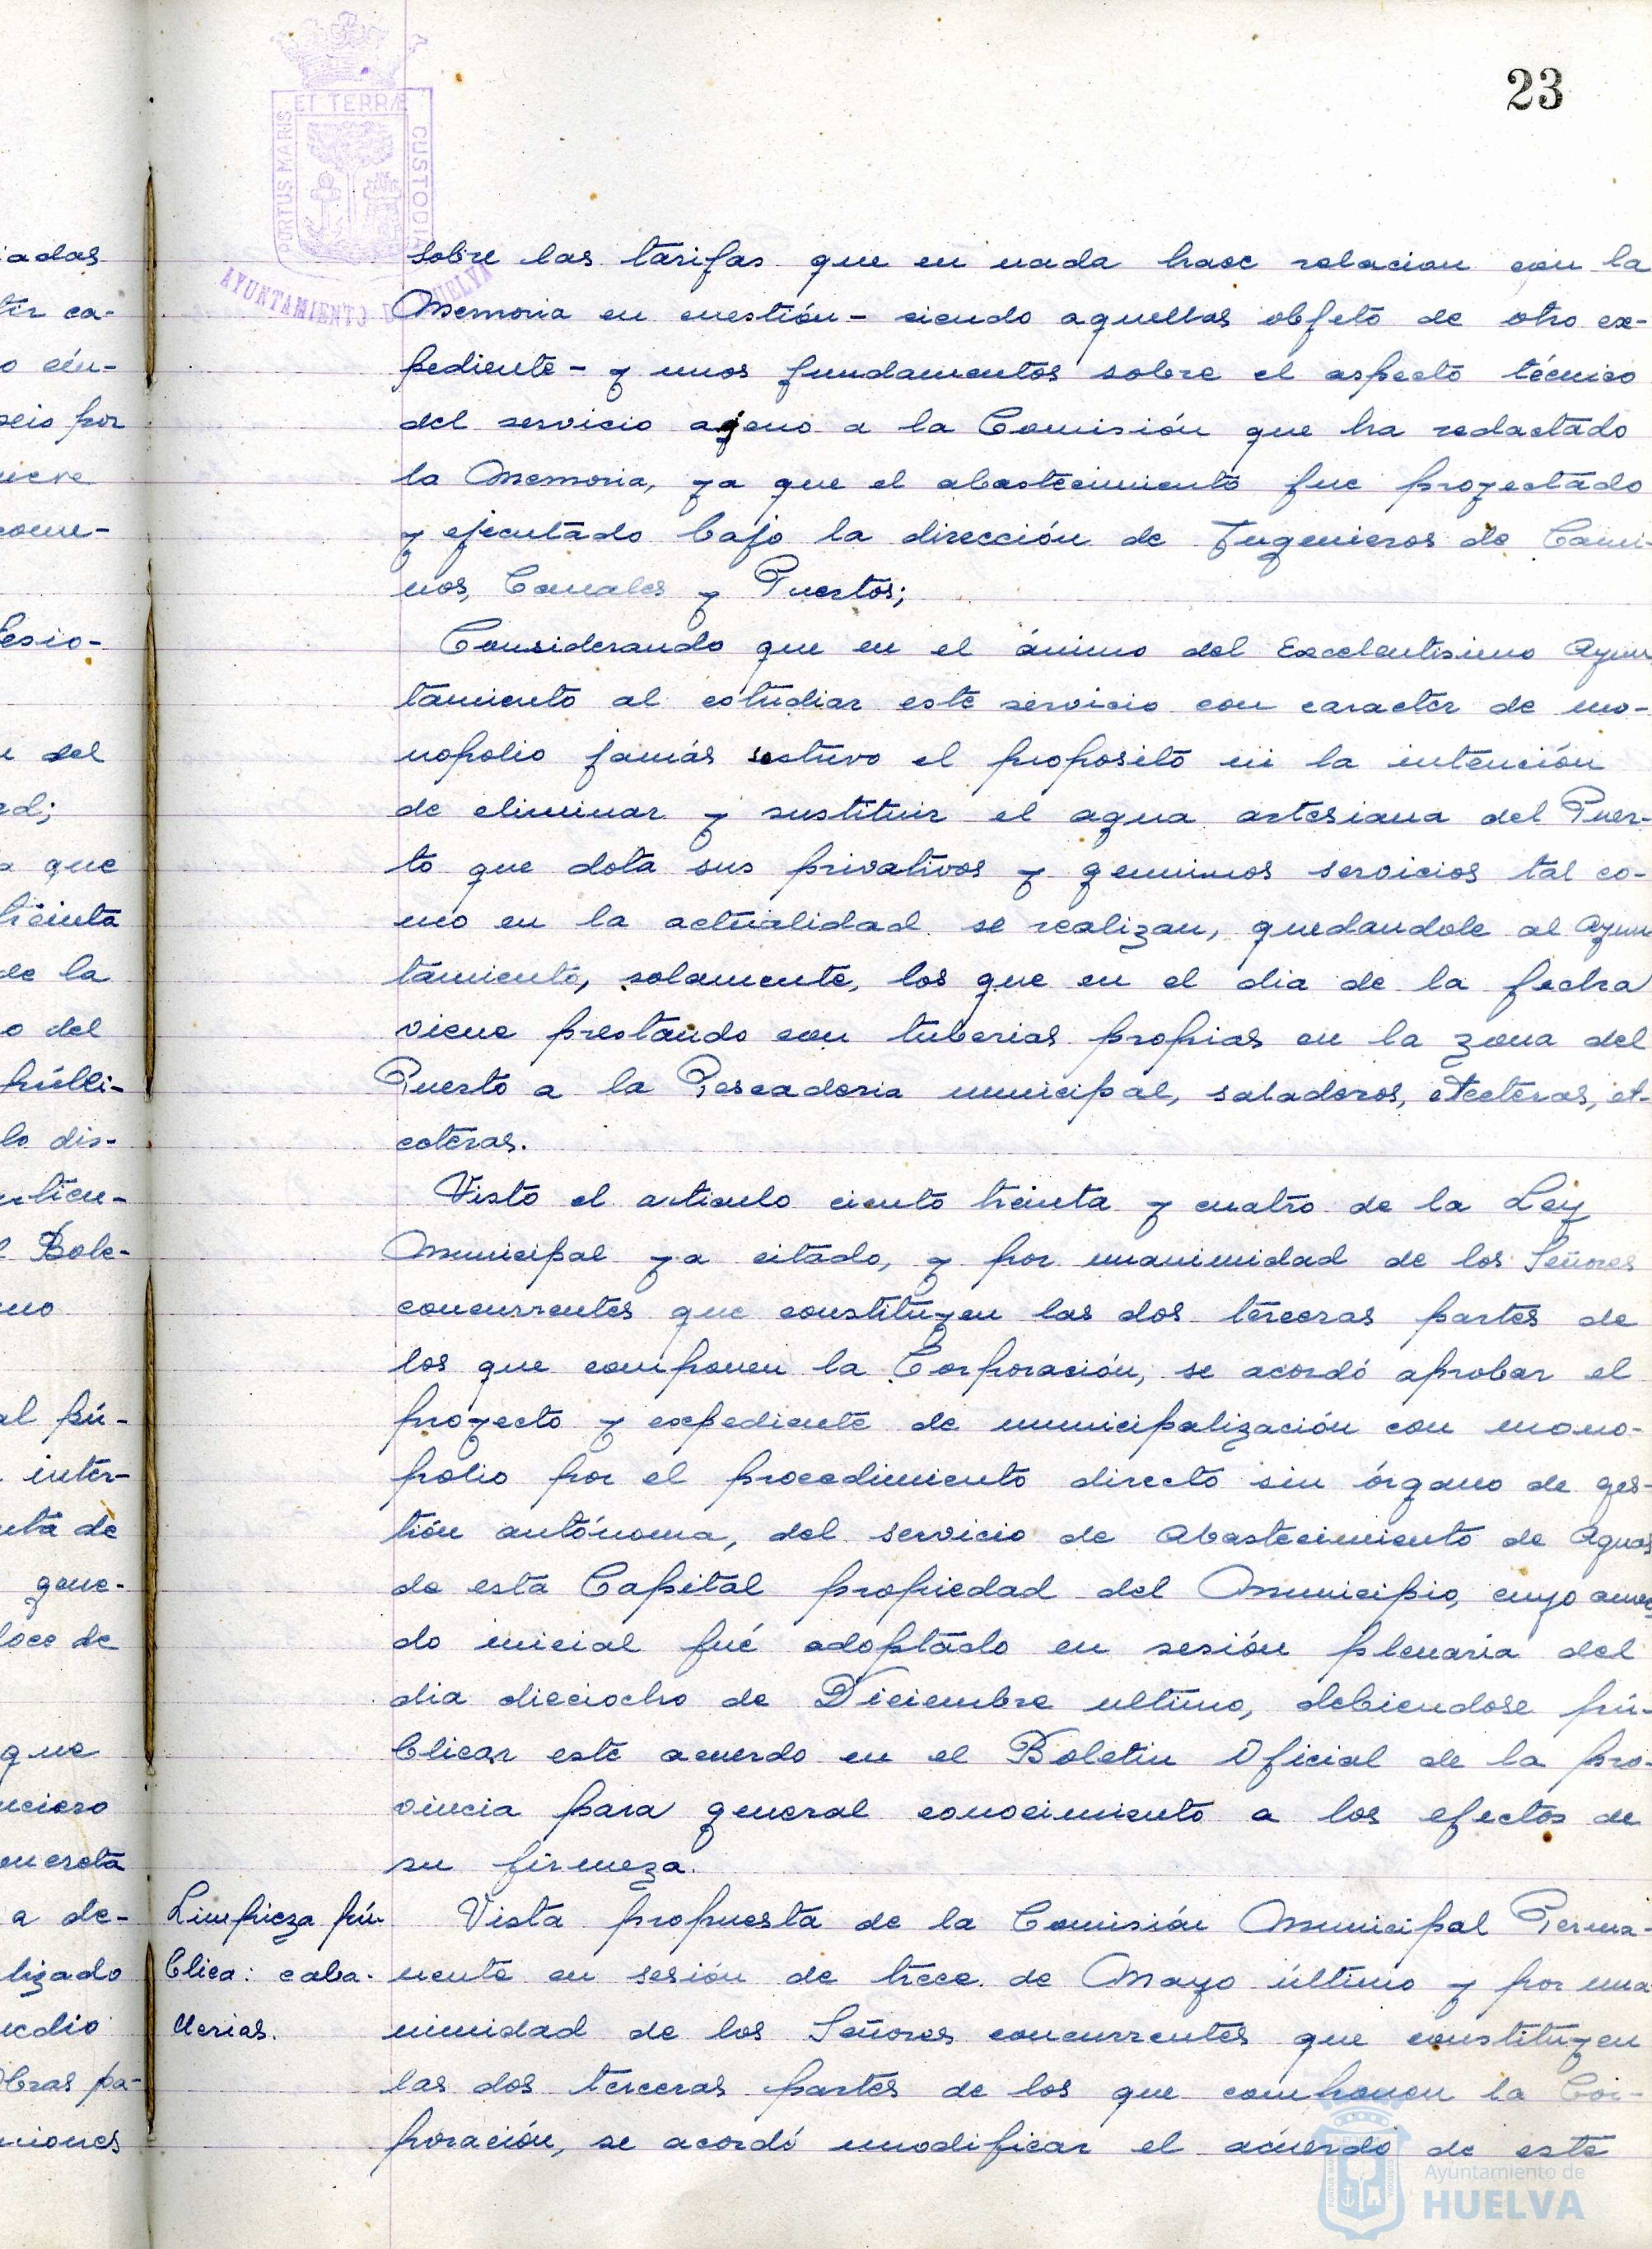 23
ET TERRÆ
PORTUS MARIS
CUSTODIA
AYUNTAMIENTO DE HUELVA
sobre las tarifas que en nada hace relacion con la
Memoria en cuestión - siendo aquellas objeto de otro ex-
pediente - y unos fundamentos sobre el aspecto técnico
del servicio ageno a la Comisión que ha redactado
la Memoria, ya que el abastecimiento fue proyectado
y ejecutado bajo la dirección de Ingenieros de Cami-
nos, Canales y Puertos;
Considerando que en el ánimo del Excelentisimo Ayun
tamiento al estudiar este servicio con caracter de mo-
nopolio jamás sostuvo el proposito ni la intención
de eliminar y sustituir el agua artesiana del Puer-
to que dota sus privativos y genuinos servicios tal co-
mo en la actualidad se realizan, quedandole al Ayun
tamiento, solamente, los que en el dia de la fecha
viene prestando con tuberias propias en la zona del
Puerto a la Pescaderia municipal, saladeros, etceteras, et-
ceteras.
Visto el articulo ciento treinta y cuatro de la Ley
Municipal ya citado, y por unanimidad de los Señores
concurrentes que constituyen las dos terceras partes de
los que componen la Corporación, se acordó aprobar el
proyecto y expediente de municipalización con mono-
polio por el procedimiento directo sin órgano de ges-
tión autónoma, del servicio de Abastecimiento de Aguas
de esta Capital propiedad del Municipio, cuyo acuer
do inicial fué adoptado en sesión plenaria del
dia dieciocho de Diciembre ultimo, debiendose pú-
blicar este acuerdo en el Boletin Oficial de la pro-
vincia para general conocimiento a los efectos de
su firmeza.
Limpieza pú-
blica: caba-
llerias.
Vista propuesta de la Comisión Municipal Perma-
nente en sesión de trece de Mayo último y por una
nimidad de los Señores concurrentes que constituyen
las dos terceras partes de los que componen la Cor-
poración, se acordó modificar el acuerdo de este
Ayuntamiento de
HUELVA